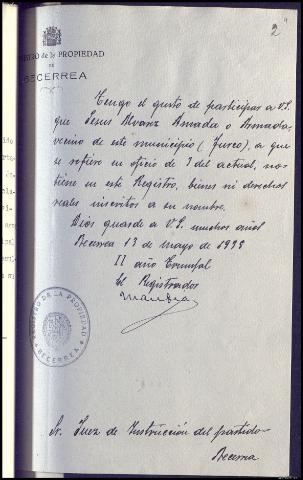 2
REGISTRO de la PROPIEDAD
DE
BECERREA
Tengo el gusto de participar a V.S.
que Jesus Alvarez Amada o Armada,
vecino de este municipio (Furco), a que
se refiere su oficio de 3 del actual, no
tiene en este Registro, bienes ni derechos
reales inscritos a su nombre.
Dios guarde a V.S. muchos años
Becerrea 13 de Mayo de 1938
II año Triunfal
El Registrador
REGISTRO DE LA PROPIEDAD
BECERREA
Sr. Juez de Instrucción del partido
Becerrea